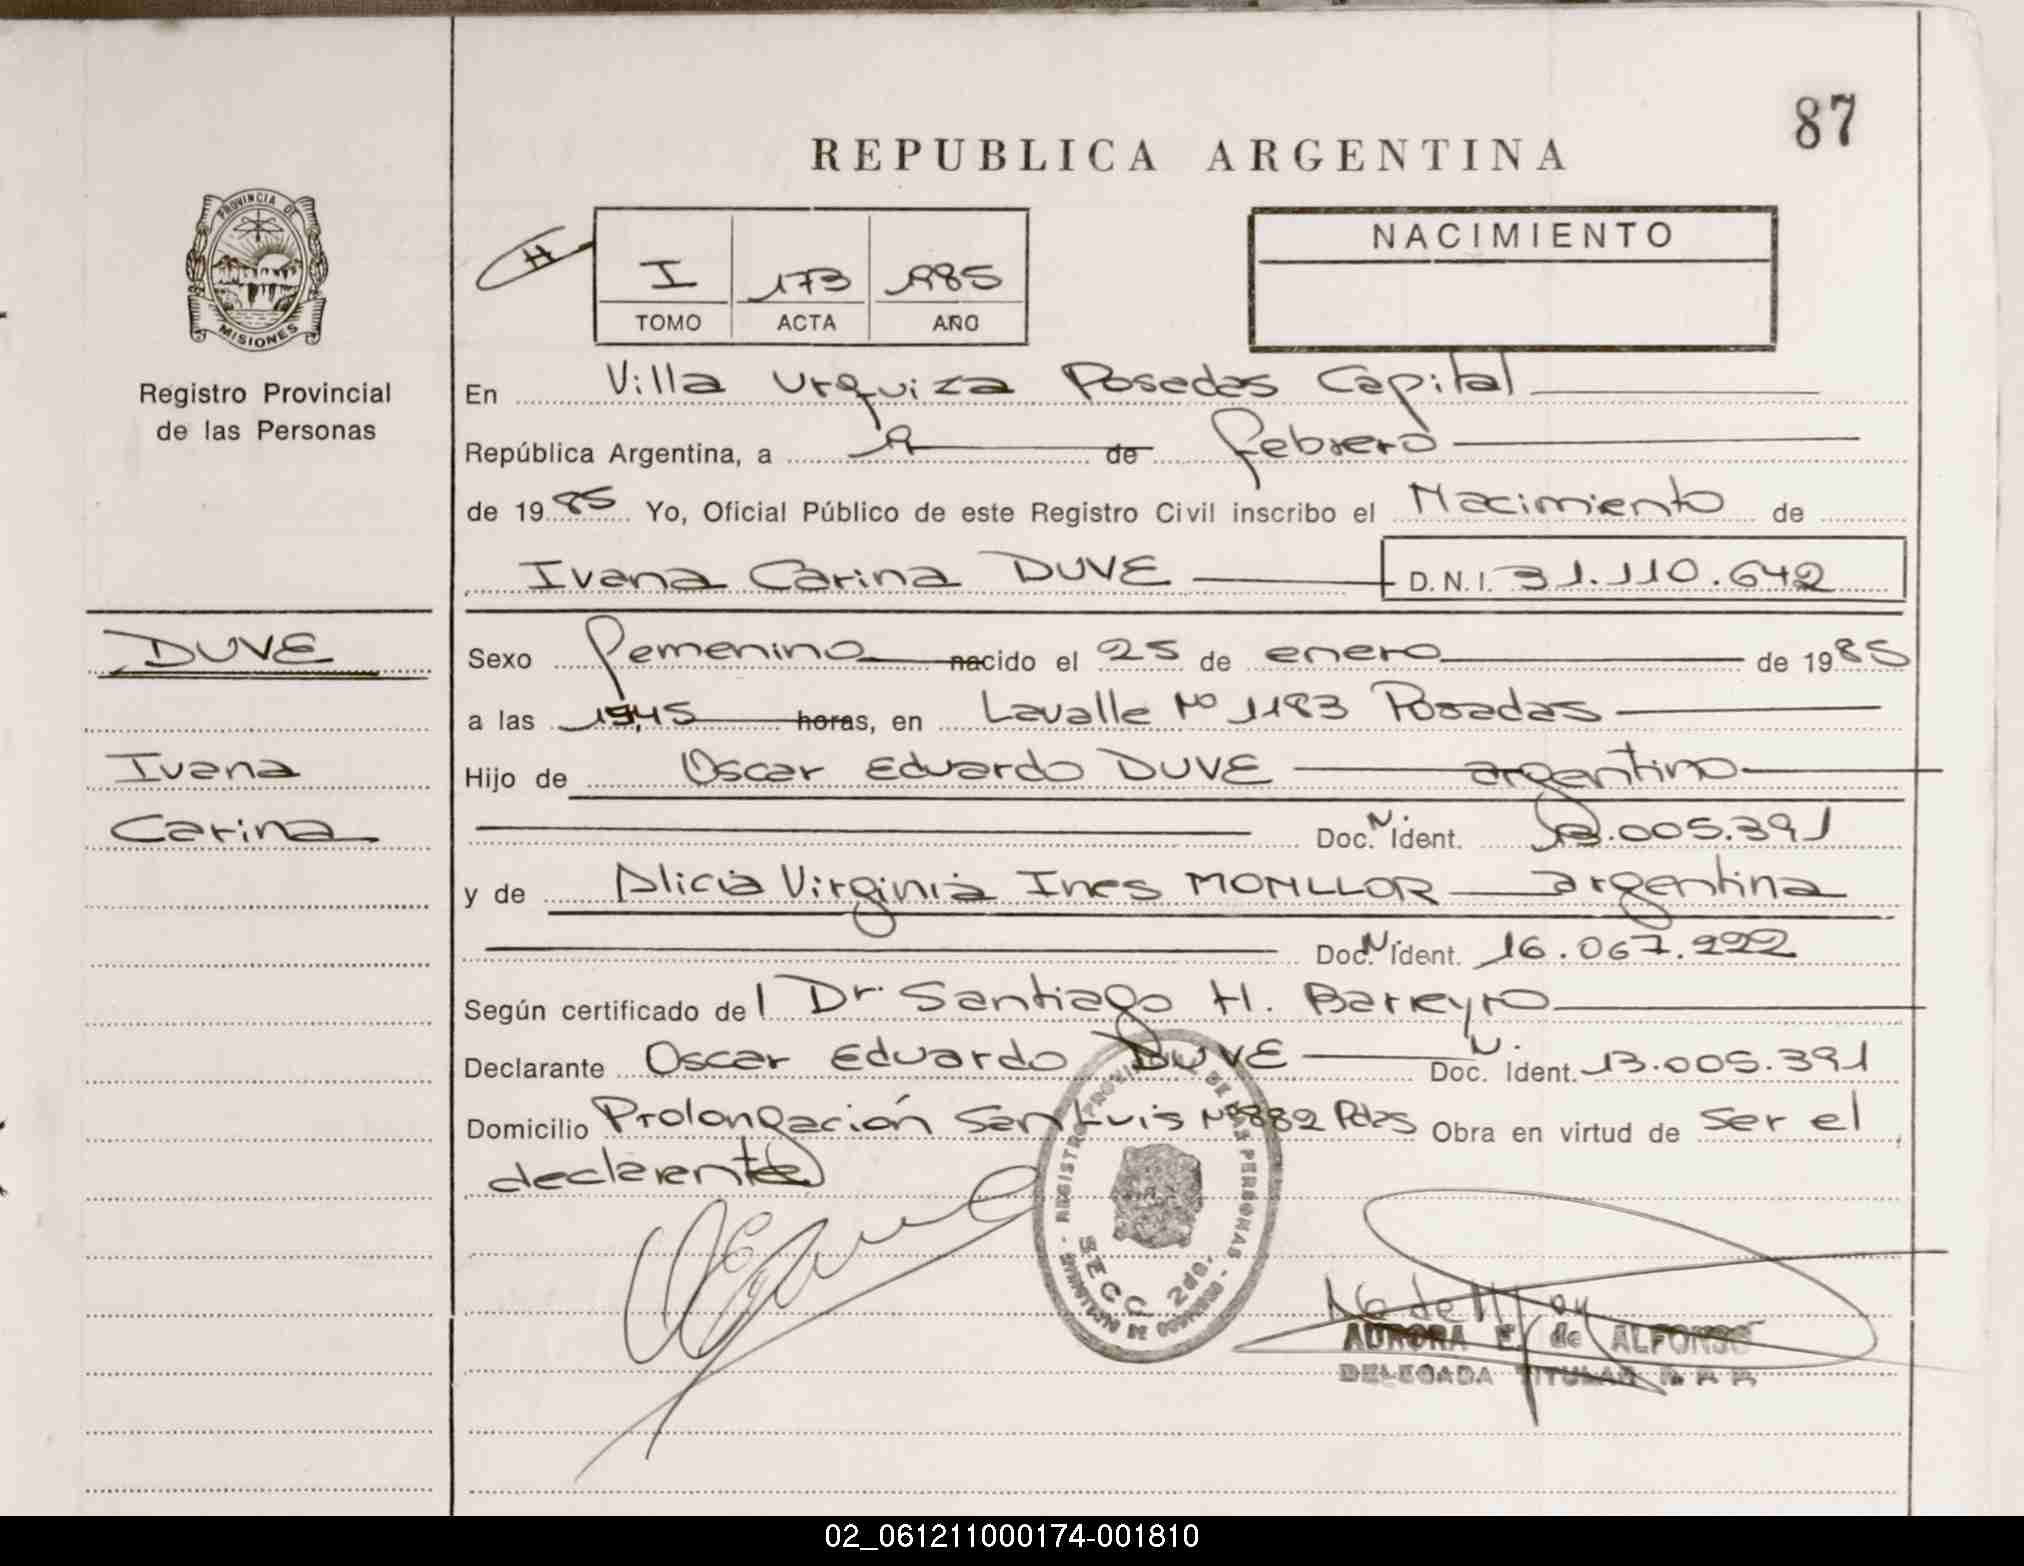 87
REPUBLICA ARGENTINA
PROVINCIA DE
MISIONES
Registro Provincial
de las Personas
H
I 173 1985
TOMO ACTA AÑO
NACIMIENTO
En Villa Urquiza Posadas Capital
República Argentina, a de Febrero
de 1985 Yo, Oficial Público de este Registro Civil inscribo el Nacimiento de
Ivana Carina DUVE D.N.I. 31.110.642
DUVE
Sexo Femenino nacido el 25 de enero de 1985
a las 19,45 horas, en Lavalle Nº 1183 Posadas
Ivana
Hijo de Oscar Eduardo DUVE argentino
Carina
Doc. N. Ident. 13.005.391
y de Alicia Virginia Ines MONLLOR argentina
Doc. N. Ident. 16.067.222
Según certificado del Dr. Santiago H. Barreyro
Declarante Oscar Eduardo DUVE Doc. N. Ident. 13.005.391
Domicilio Prolongación San Luis Nº 882 Pdas Obra en virtud de ser el
declarante
REGISTRO PROVINCIAL DE LAS PERSONAS - MINISTERIO DE GOBIERNO -
SECC. 2da.
AURORA E. de ALFONSO
DELEGADA TITULAR R. P. P.
02_061211000174-001810